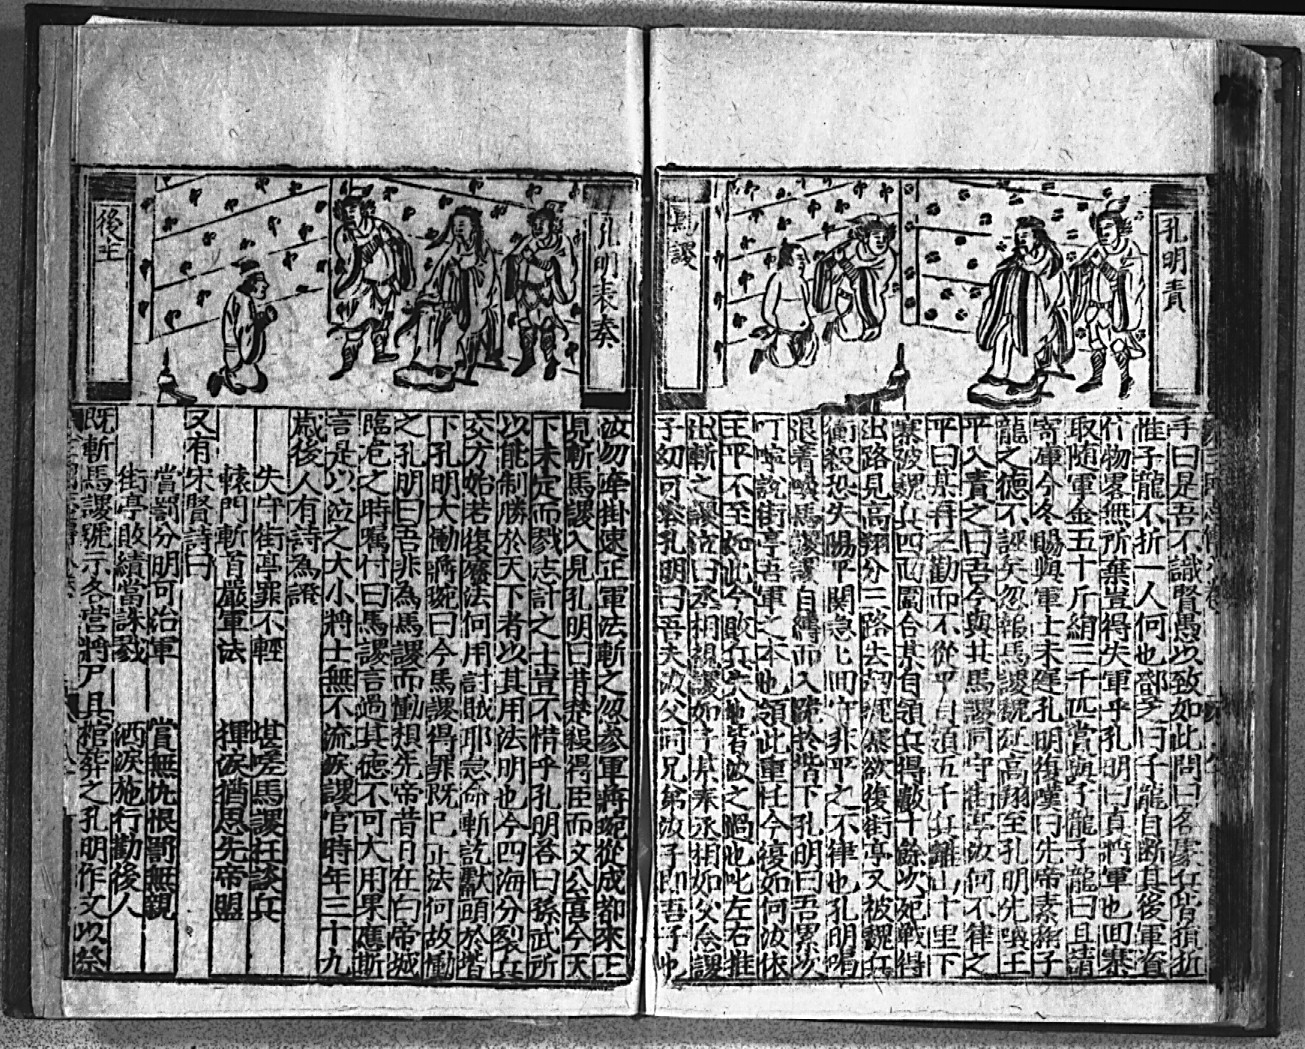 孔明責
馬謖
手曰是吾不識賢愚以致如此問曰各處兵皆損折
惟子龍不折一人何也鄧芝曰子龍自断其後軍資
什物畧無所棄豈得失軍乎孔明曰真將軍也回寨
取随軍金五十斤絹三千匹賞與子龍子龍曰且請
寄庫今冬賜與軍士未遲孔明復嘆曰先帝素稱子
龍之德不誣矣忽報馬謖魏延高翔至孔明先喚王
平入責之曰吾今與共馬謖同守街亭汝何不律之
平曰某再三勸而不從平自領五千兵離山十里下
寨被魏兵四面圍合某自領兵得數十餘次死戰得
出路見高翔分三路去刼魏寨欲復街亭又被魏兵
衝殺恐失陽平関急上回守非平之不律也孔明喝
退着喚馬謖謖自縛而入跪於堦下孔明曰吾累次
丁寧說街亭吾軍之本也領此重任今復如何汝依
王平不至如此今敗兵失地皆汝之過也叱左右推
出斬之謖泣曰丞相視謖如子某奉丞相如父合謖
子幼可容孔明曰吾夫汝父同兄弟汝子即吾子也
孔明表奏
後主
汝勿牽掛速正軍法斬之忽參軍蔣琬從成都來正
見斬馬謖入見孔明曰昔楚殺得臣而文公喜今天
下未定而戮志計之士豈不惜乎孔明答曰孫武所
以能制勝於天下者以其用法明也今四海分裂兵
交方始若復廢法何用討賊耶急命斬訖獻頭於堦
下孔明大慟蔣琬曰今馬謖得罪既已正法何故慟
之孔明曰吾非為馬謖而慟想先帝昔日在白帝城
臨危之時嘱付曰馬謖言過其德不可大用果應斯
言是以泣之大小將士無不流淚謖官時年三十九
歲後人有詩為證
失守街亭罪不輕　堪嗟馬謖枉談兵
轅門斬首嚴軍法　揮淚猶思先帝盟
又有宋賢詩曰
當罰分明可治軍　賞無仇恨罰無親
街亭敗績當誅戮　洒淚施行勸後人
既斬馬謖號示各營將尸具棺葬之孔明作文以祭